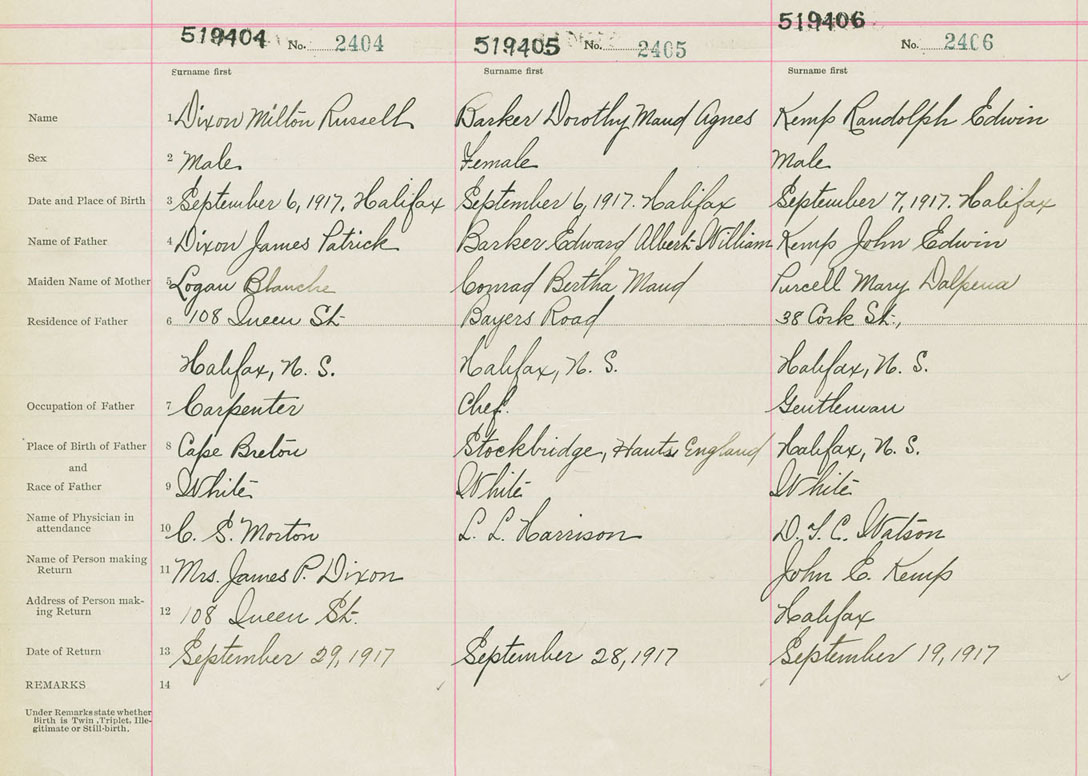 519404 No. 2404 519405 No. 2405 519406 No. 2406
Surname first Surname first Surname first
Name 1 Dixon Milton Russell Barker Dorothy Maud Agnes Kemp Randolph Edwin
Sex 2 Male Female Male
Date and Place of Birth 3 September 6, 1917, Halifax September 6, 1917. Halifax September 7, 1917. Halifax
Name of Father 4 Dixon James Patrick Barker Edward Albert William Kemp John Edwin
Maiden Name of Mother 5 Logan Blanche Conrad Bertha Maud Purcell Mary Dalpena
Residence of Father 6 108 Queen St. Bayers Road 38 Cork St.,
Halifax, N. S. Halifax, N. S. Halifax, N. S.
Occupation of Father 7 Carpenter Chef. Gentleman
Place of Birth of Father 8 Cape Breton Stockbridge, Hants England Halifax, N. S.
and
Race of Father 9 White White White
Name of Physician in
attendance 10 C. S. Morton L. L. Harrison D. T. C. Watson
Name of Person making
Return 11 Mrs. James P. Dixon John E. Kemp
Address of Person mak-
ing Return 12 108 Queen St. Halifax
Date of Return 13 September 29, 1917 September 28, 1917 September 19, 1917
REMARKS 14
Under Remarks state whether
Birth is Twin, Triplet, Ille-
gitimate or Still-birth.